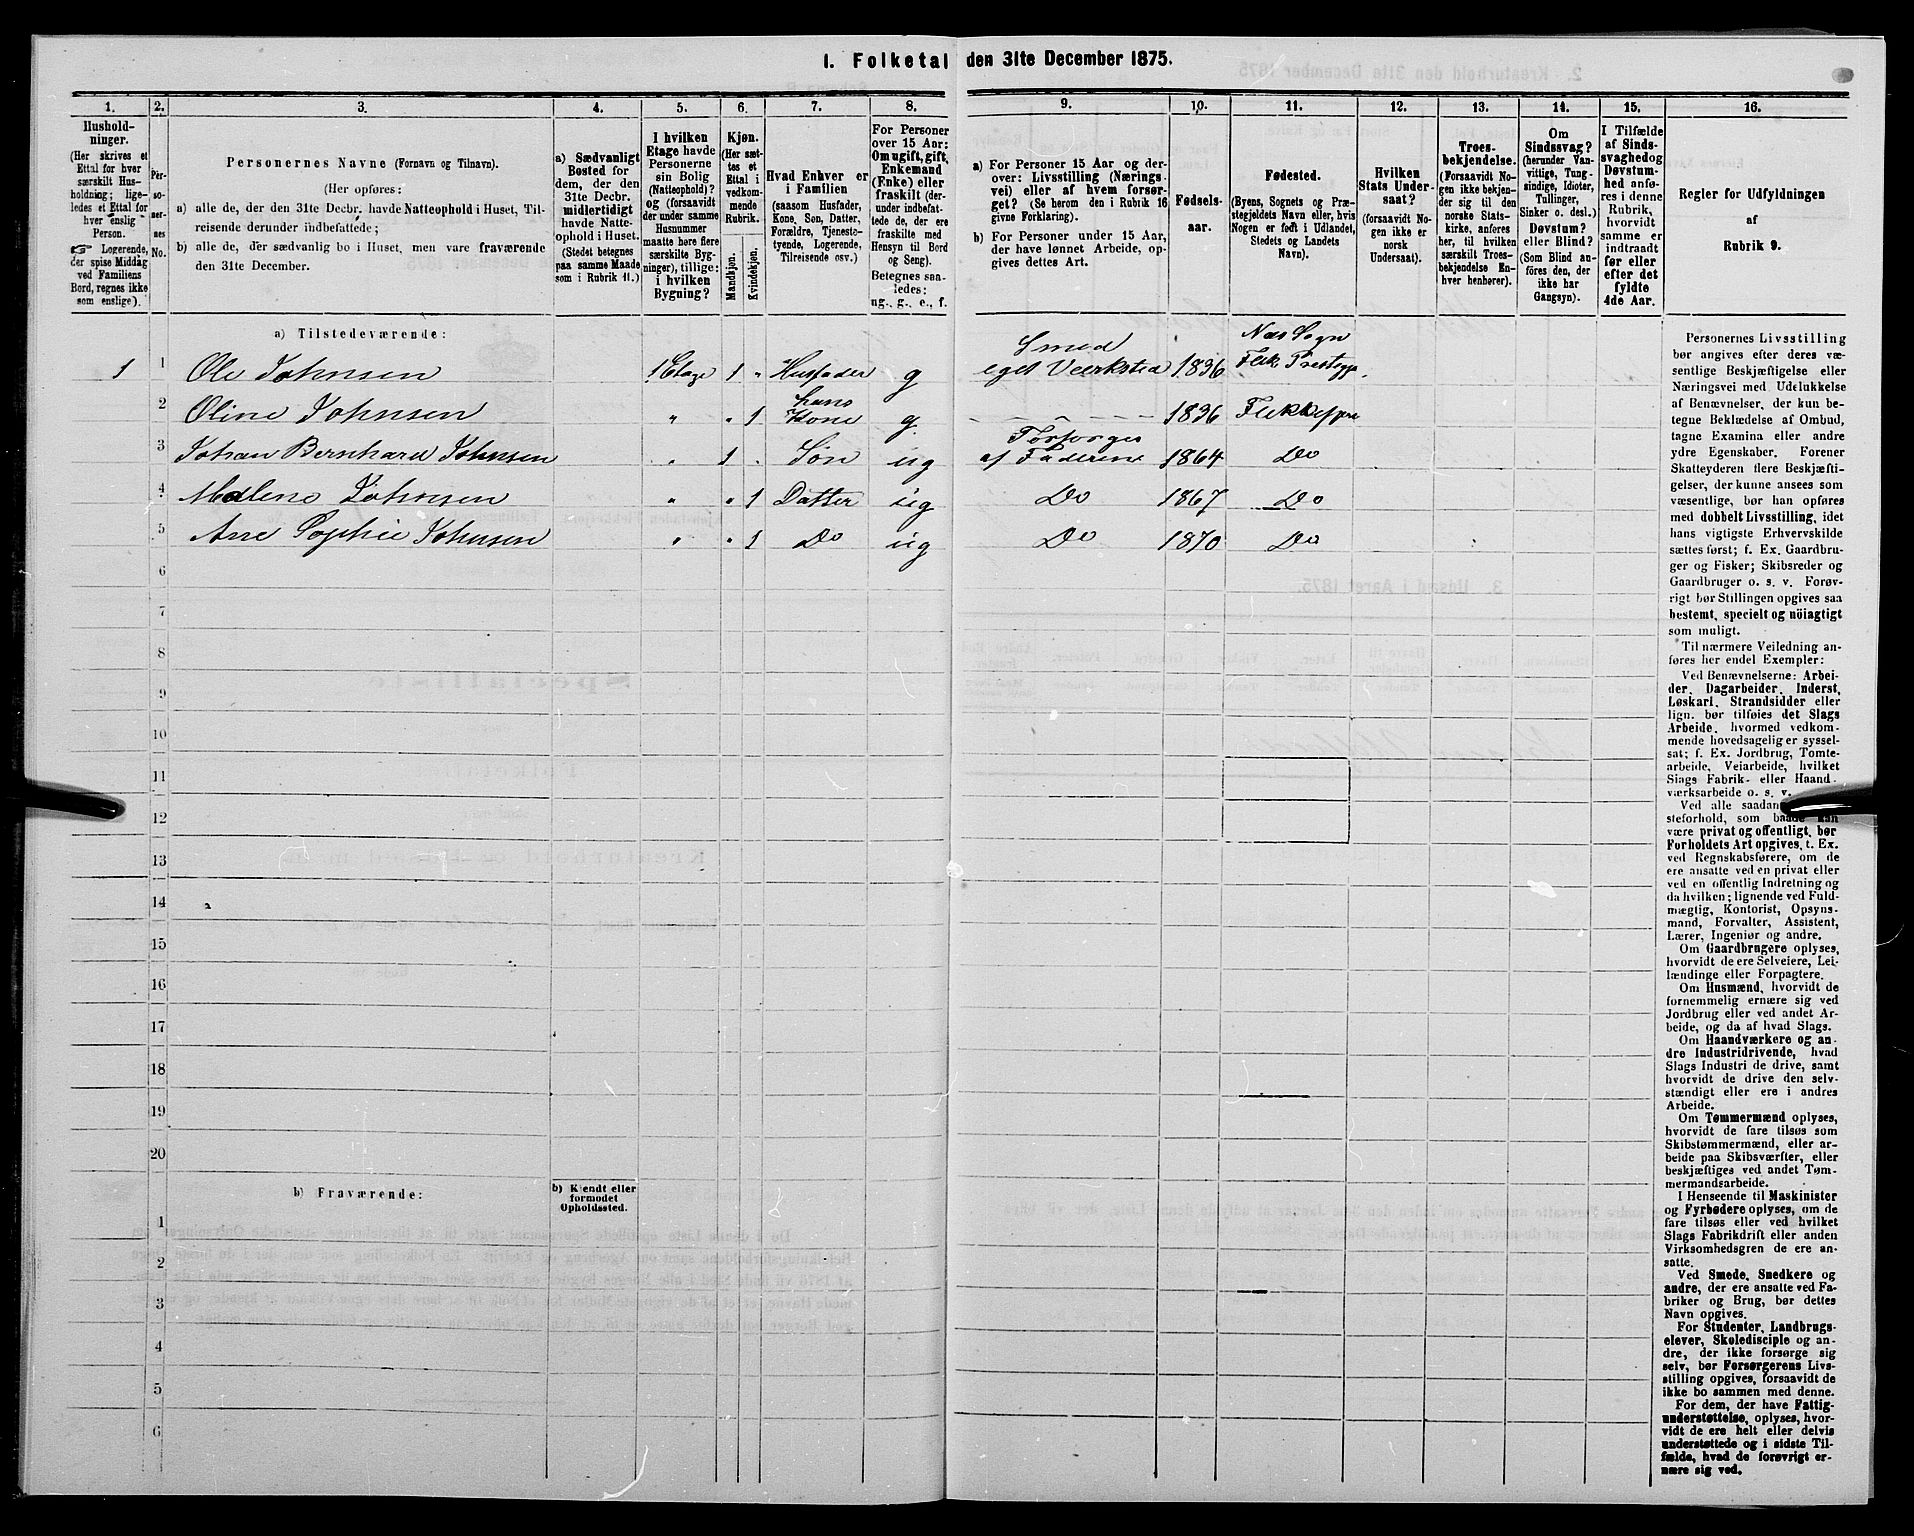 1. Folketal den 31te December 1875.
1. 2. 3. 4. 5. 6. 7. 8. 9. 10. 11. 12. 13. 14. 15. 16.
Hushold-
ninger.
(Her skrives et
Ettal for hver
særskilt Hus-
holdning; lige-
ledes et Ettal for
hver enslig
Person.
☞ Logerende,
der spise Middag
ved Familiens
Bord, regnes ikke
som enslige).
Per-
so-
ner-
nes
No.
Personernes Navne (Fornavn og Tilnavn).
(Her opføres:
a) alle de, der den 31te Decbr. havde Natteophold i Huset, Til-
reisende derunder indbefattede;
b) alle de, der sædvanlig bo i Huset, men vare fraværende
den 31te December.
a) Sædvanligt
Bosted for
dem, der den
31te Decbr.
midlertidigt
havde Natte-
ophold i Huset.
(Stedet betegnes
paa samme Maade
som i Rubrik 11.)
I hvilken
Etage havde
Personerne
sin Bolig
(Natteophold)?
(forsaavidt
der under samme
Husnummer
maatte høre flere
særskilte Byg-
ninger), tillige:
i hvilken
Bygning?
Kjøn.
(Her sæt-
tes et
Ettal i
vedkom-
mende
Rubrik.
Mandkjøn.
Kvindekjøn.
Hvad Enhver er
i Familien
(saasom Husfader,
Kone, Søn, Datter,
Forældre, Tjeneste-
tyende, Logerende,
Tilreisende osv.)
For Personer
over 15 Aar:
Om ugift, gift,
Enkemand
(Enke) eller
fraskilt (der-
under indbefat-
tede de, der ere
fraskilte med
Hensyn til Bord
og Seng).
Betegnes saa-
ledes:
ug., g., e., f.
a) For Personer 15 Aar og der-
over: Livsstilling (Nærings-
vei) eller af hvem forsør-
get? (Se herom den i Rubrik 16
givne Forklaring).
b) For Personer under 15 Aar,
der have lønnet Arbeide, op-
gives dettes Art.
Fødsels-
aar.
Fødested.
(Byens, Sognets og Præ-
stegjeldets Navn eller, hvis
Nogen er født i Udlandet,
Stedets og Landets
Navn).
Hvilken
Stats Under-
saat?
(forsaavidt No-
gen ikke er
norsk
Undersaat).
Troes-
bekjendelse.
(Forsaavidt No-
gen ikke bekjen-
der sig til den
norske Stats-
kirke, anføres
her, til hvilken
særskilt Troes-
bekjendelse En-
hver henhører).
Om
Sindssvag?
(herunder Van-
vittige, Tung-
sindige, Idioter,
Tullinger,
Sinker o. desl.)
Døvstum?
eller Blind?
(Som Blind an-
føres den, der
ikke har
Gangsyn).
I Tilfælde
af Sinds-
svaghed og
Døvstum-
hed anfø-
res i denne
Rubrik,
hvorvidt
samme er
indtraadt
før eller
efter det
fyldte
4de Aar.
Regler for Udfyldningen
af
Rubrik 9.
a) Tilstedeværende:
1 1 Ole Johnsen 1 Etage 1 " Husfader g Smed eget Veerksted 1836 Næs Sogn Flek Prestegj.
2 Oline Johnsen " " 1 hans Kone g. 1836
3 Johan Bernhard Johnsen " 1 " Søn ug Forsørges af Faderene 1864 Do
4 Johnsen " " 1 Datter ug Do 1867 Do
5 Ane Sophie Johnsen " " 1 Do ug Do 1870 Do
6
7
8
9
10
11
12
13
14
15
16
17
18
19
20
b) Fraværende:
b) Kjendt eller
formodet
Opholdssted.
1
2
3
4
5
6
Personernes Livsstilling
bør angives efter deres væ-
sentlige Beskjæftigelse eller
Næringsvei med Udelukkelse
af Benævnelser, der kun be-
tegne Beklædelse af Ombud,
tagne Examina eller andre
ydre Egenskaber. Forener
Skatteyderen flere Beskjæfti-
gelser, der kunne ansees som
væsentlige, bør han opføres
med dobbelt Livsstilling, idet
hans vigtigste Erhvervskilde
sættes først; f. Ex. Gaardbru-
ger og Fisker; Skibsreder og
Gaardbruger o. s. v. Forøv-
rigt bør Stillingen opgives saa
bestemt, specielt og nöiagtigt
som muligt.
Til nærmere Veiledning an-
føres her endel Exempler:
Ved Benævnelserne: Arbei-
der, Dagarbeider, Inderst,
Løskarl, Strandsidder eller
lign. bør tilføies det Slags
Arbeide, hvormed vedkom-
mende hovedsagelig er syssel-
sat; f. Ex. Jordbrug, Tomte-
arbeide, Veiarbeide, hvilket
Slags Fabrik- eller Haand-
værksarbeide o. s. v.
Ved alle
steforhold, som
være privat og offentligt, bør
Forholdets Art opgives, t. Ex.
ved Regnskabsførere, om de
ere ansatte ved en privat eller
ved en offentlig Indretning og
da hvilken; lignende ved Fuld-
mægtig, Kontorist, Opsyns-
mand, Forvalter, Assistent,
Lærer, Ingeniør og andre.
Om Gaardbrugere oplyses,
hvorvidt de ere Selveiere, Lei-
lændinge eller Forpagtere.
Om Husmænd, hvorvidt de
fornemmelig ernære sig ved
Jordbrug eller ved andet Ar-
beide, og da af hvad Slags.
Om Haandværkere og an-
dre Industridrivende, hvad
Slags Industri de drive, samt
hvorvidt de drive den selv-
stændigt eller ere i andres
Arbeide.
Om Tømmermænd oplyses,
hvorvidt de fare tilsøs som
Skibstømmermænd, eller ar-
beide paa Skibsværfter, eller
beskjæftiges ved andet Tøm-
mermandsarbeide.
I Henseende til Maskinister
og Fyrbødere oplyses, om de
fare tilsøs eller ved hvilket
Slags Fabrikdrift eller anden
Virksomhedsgren de ere an-
satte.
Ved Smede, Snedkere og
andre, der ere ansatte ved Fa-
briker og Brug, bør dettes
Navn opgives.
For Studenter, Landbrugs-
elever, Skoledisciple og an-
dre, der ikke forsørge sig
selv, bør Forsørgerens Livs-
stilling opgives, forsaavidt de
ikke bo sammen med denne.
For dem, der have Fattig-
understøttelse, oplyses, hvor-
vidt de ere helt eller delvis
understøttede og i sidste Til-
fælde, hvad de forøvrigt er-
nære sig ved.